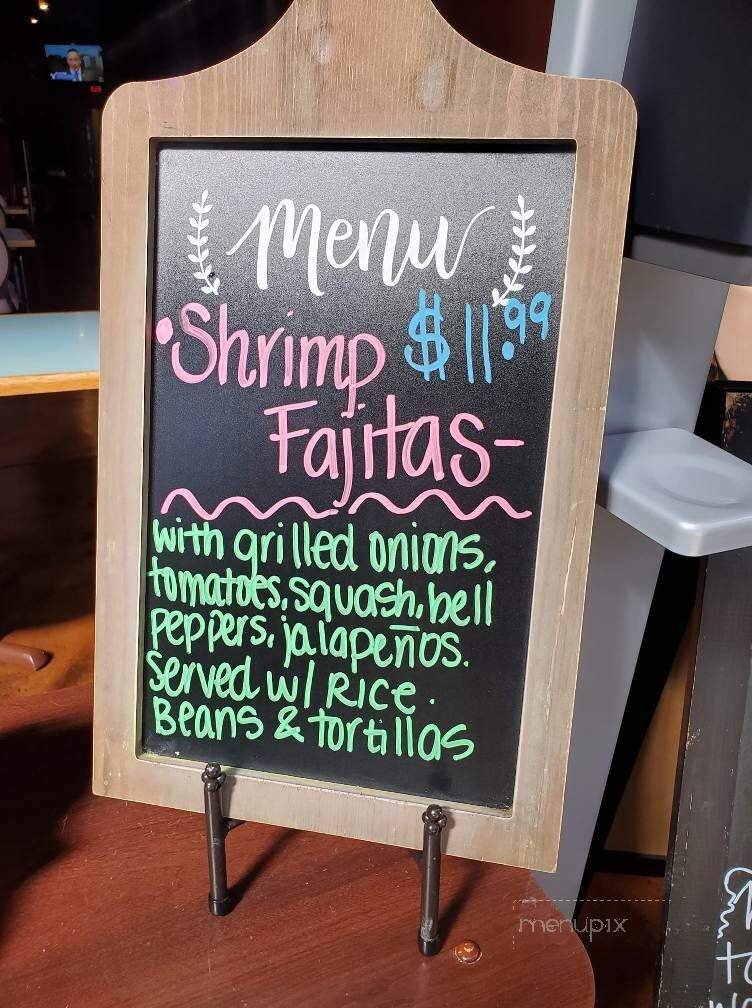 Menu
•Shrimp $11.99
Fajitas-
with grilled onions,
tomatoes, squash, bell
peppers, jalapeños.
Served w/ Rice.
Beans & tortillas
menupix